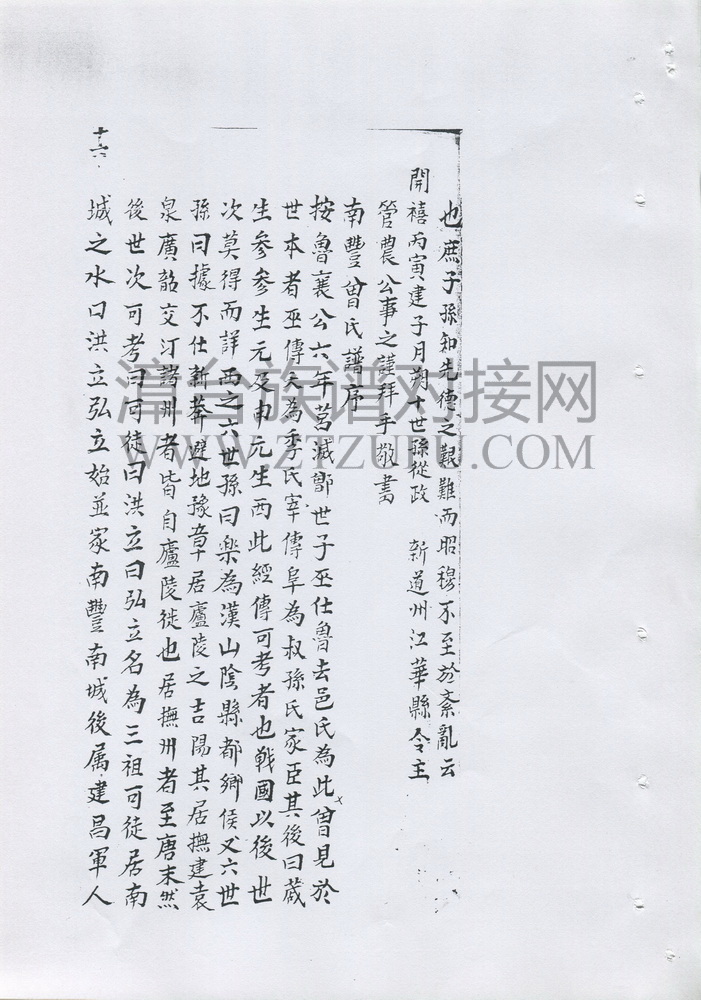 也庶子孫知先德之艱難而昭穆不至於紊亂云
開禧丙寅建子月朔十世孫從政 新道州江華縣令主
管農公事之謹拜手敬書
南豐曾氏譜序
按魯襄公六年莒滅鄫世子巫仕魯去邑氏為此曾見於
世本者巫傳夭為季氏宰傳阜為叔孫氏家臣其後曰蒧
生參參生元及申元生西此經傳可考者也戰國以後世
次莫得而詳西之六世孫曰樂為漢山陰縣都鄉侯又六世
孫曰據不仕新莽避地豫章居廬陵之吉陽其居撫建袁
泉廣韶交汀諸州者皆自廬陵徙也居撫州者至唐末然
後世次可考曰可徒曰洪立曰弘立名為三祖可徒居南
城之水曰洪立弘立始並家南豐南城後属建昌軍人
十六
漳台族谱对接网
WWW.ZTZUPU.COM